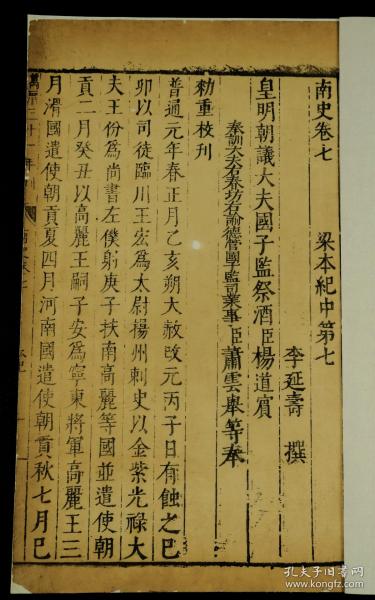 南史卷七　梁本紀中第七
李延壽　撰
皇明朝議大夫國子監祭酒臣楊道賓
奉訓大夫右春坊右諭德管國子監司業事臣蕭雲舉等奉
勑重校刊
普通元年春正月乙亥朔大赦改元丙子日有蝕之巳
卯以司徒臨川王宏爲太尉楊州刺史以金紫光祿大
夫王份爲尚書左僕躬庚子扶南高麗等國並遣使朝
貢二月癸丑以高麗王嗣子安爲寧東將軍高麗王三
月滑國遣使朝貢夏四月河南國遣使朝貢秋七月巳
萬曆三十一年刊
孔夫子旧书网
www.kongfz.com